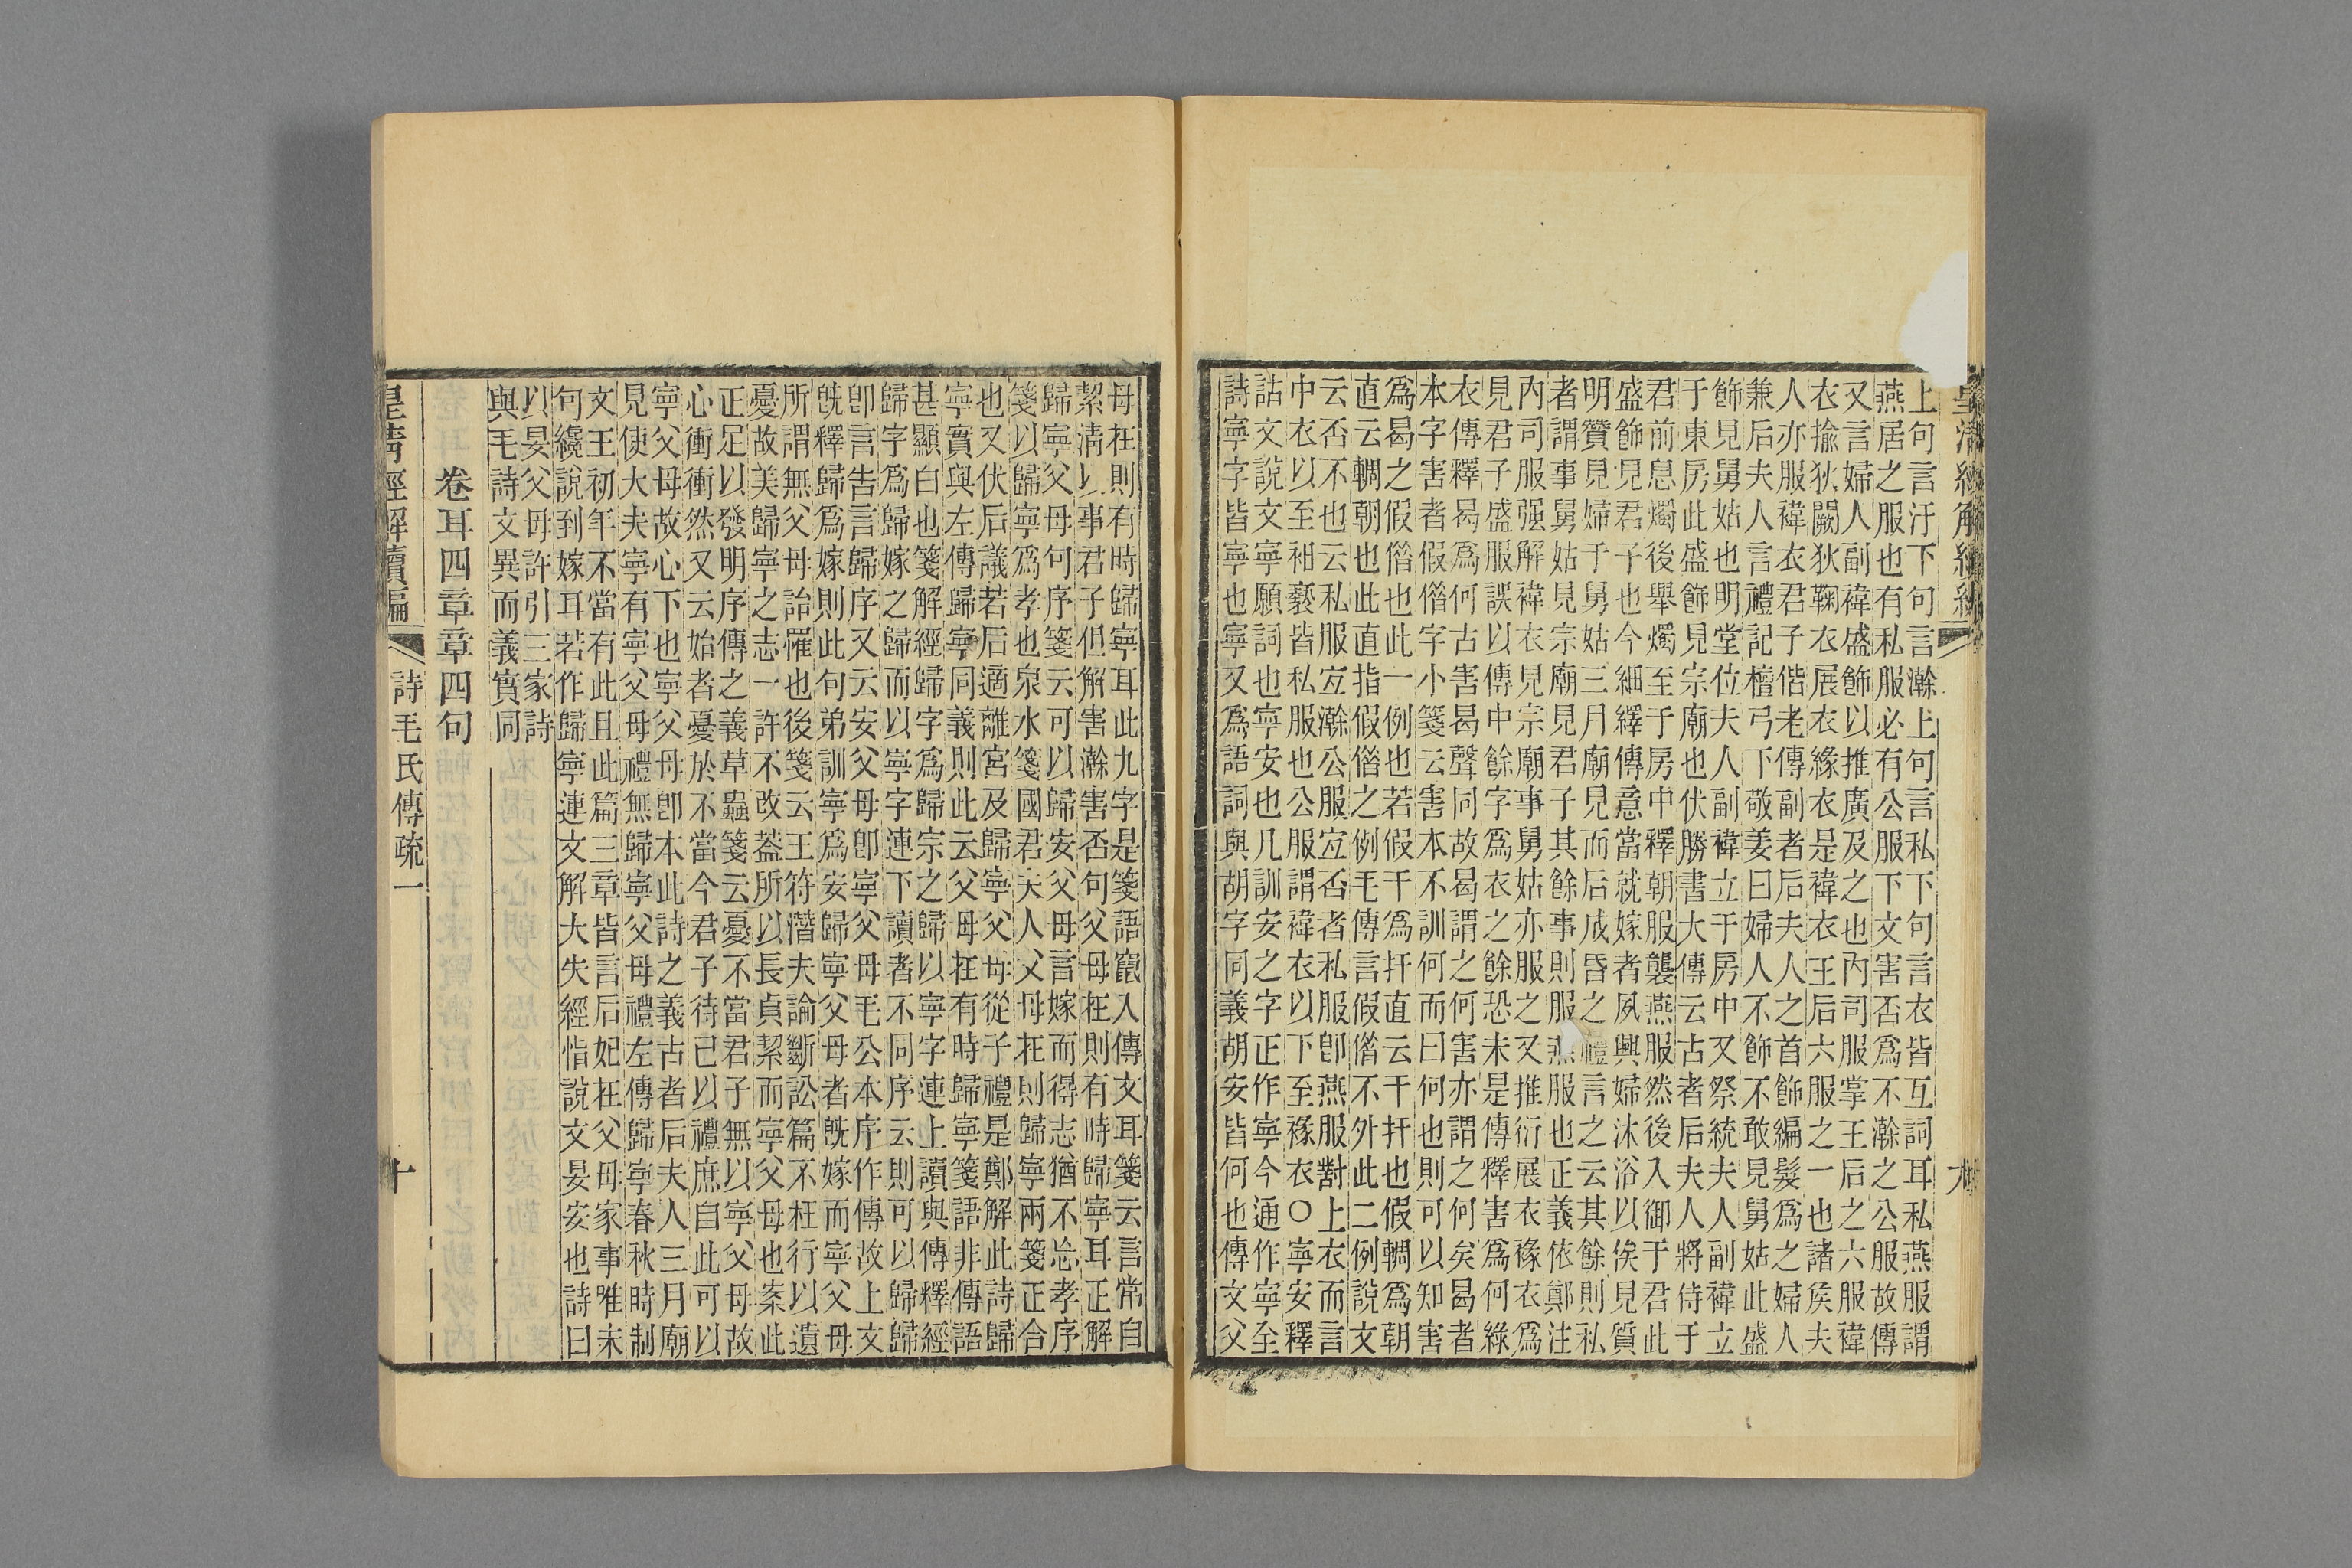 上句言汙下句言瀚上句言私下句言衣皆互詞耳私燕服謂
燕居之服也有私服必有公服下文害否爲不瀚之公服故傳
又言婦人副褘盛飾以推廣及之也內司服掌王后之六服褘
衣揄狄闕狄鞠衣展衣緣衣是褘衣王后六服之一也諸矦夫
人亦服褘衣君子偕老傳副者后夫人之首飾編髮爲之婦人
兼后夫人言禮記檀弓下敬姜曰婦人不飾不敢見舅姑此盛
飾見舅姑也明堂位夫人副褘立于房中又祭統夫人副褘立
于東房此盛飾見宗廟也伏勝書大傳云古者后夫人將侍于
君前息燭後舉燭至于房中釋朝服襲燕服然後入御于君此
盛飾見君子也今細繹傳意當就嫁者夙興婦沐浴以俟見質
明贊見婦于舅姑三月廟見而后成昏之禮言之云其餘則私
者謂事舅姑見宗廟見君子其餘事則服燕服也正義依鄭注
內司服强解褘衣見宗廟事舅姑亦服之又推衍展衣褖衣爲
見君子盛服誤以傳中餘字爲衣之餘恐未是傳釋害爲何綠
衣傳釋曷爲何古害曷聲同故曷謂之何害亦謂之何矣曷者
本字害者假借字小箋云害本不訓何而曰何也則可以知害
爲曷之假借也此一例也若假干爲扞直云干扞也假輖爲朝
直云輖朝也此直指假借之例毛傳言假借不外此二例說文
云否不也云私服宐瀚公服宐否者私服卽燕服對上衣而言
中衣以至袒褻皆私服也公服謂褘衣以下至褖衣○寧安釋
詁文說文寧願詞也寧安也凡訓安之字正作寧今通作寧全
詩寧字皆寧也寧又爲語詞與胡字同義胡安皆何也傳文父
母在則有時歸寧耳此九字是箋語竄入傳文耳箋云言常自
絜淸以事君子但解害瀚害否句父母在則有時歸寧耳正解
歸寧父母句序箋云可以歸安父母言嫁而得志猶不忘孝序
箋以歸寧爲孝也泉水箋國君夫人父母在則歸寧兩箋正合
也又伏后議若后適離宮及歸寧父母從子禮是鄭解此詩歸
寧實與左傳歸寧同義則此云父母在有時歸寧箋語非傳語
甚顯白也箋解經歸字爲歸宗之歸以寧字連上讀與傳釋經
歸字爲歸嫁之歸而以寧字連下讀者不同序云則可以歸歸
卽言告言歸序又云安父母卽寧父母毛公本序作傳故上文
旣釋歸爲嫁則此句弟訓寧爲安歸寧父母者旣嫁而寧父母
所謂無父母詒罹也後箋云王符潛夫論斷訟篇不枉行以遺
憂故美歸寧之志一許不改葢所以長貞絜而寧父母也案此
正足以發明序傳之義草蟲箋云憂不當君子無以寧父母故
心衝衝然又云始者憂於不當今君子待己以禮庶自此可以
寧父母故心下也寧父母卽本此詩之義古者后夫人三月廟
見使大夫寧有寧父母禮無歸寧父母禮左傳歸寧春秋時制
文王初年不當有此且此篇三章皆言后妃在父母家事唯末
句纔說到嫁耳若作歸寧連文解大失經恉說文晏安也詩曰
以晏父母許引三家詩
與毛詩文異而義實同
卷耳四章章四句
皇淸經解續編 詩毛氏傳疏一 十